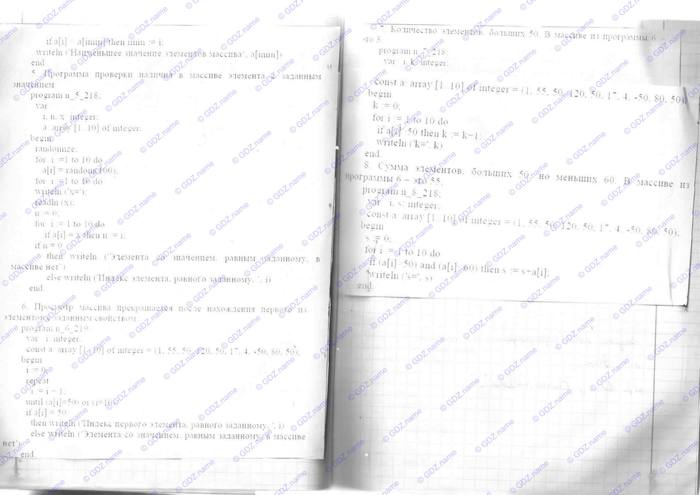 if a[i] a[imin] then imin := i;
writeln ('Наименьшее значение элементов массива', a[imin])
end.
5. Программа проверки наличия в массиве элемента с заданным
значением
program n_5_218;
var
i, n, x: integer;
a: array [1..10] of integer;
begin
randomize;
for i :=1 to 10 do
a[i] := random(100);
for i :=1 to 10 do
writeln ('x=');
readln (x);
n := 0;
for i := 1 to 10 do
if a[i] = x then n := i;
if n = 0
then writeln ('Элемента со значением, равным заданному, в
массиве нет')
else writeln ('Индекс элемента, равного заданному, ', i)
end.
6. Просмотр массива прекращается после нахождения первого из
элементов с заданным свойством.
program n_6_219;
var i: integer;
const a: array [1..10] of integer = (1, 55, 50, 120, 50, 17, 4, -50, 80, 50);
begin
i := 0;
repeat
i := i + 1;
until (a[i]=50) or (i=10);
if a[i] = 50
then writeln ('Индекс первого элемента, равного заданному, ', i)
else writeln ('Элемента со значением, равным заданному, в массиве
нет')
end.
7. Количество элементов, больших 50. В массиве из программы 6 –
это 5.
program n_7_218;
var i, k: integer;
const a: array [1..10] of integer = (1, 55, 50, 120, 50, 17, 4, -50, 80, 50);
begin
k := 0;
for i := 1 to 10 do
if a[i] 50 then k := k+1;
writeln ('k=', k)
end.
8. Сумма элементов, больших 50, но меньших 60. В массиве из
программы 6 – это 55.
program n_8_218;
var i, s: integer;
const a: array [1..10] of integer = (1, 55, 50, 120, 50, 17, 4, -50, 80, 50);
begin
s := 0;
for i := 1 to 10 do
if (a[i] 50) and (a[i] 60) then s := s+a[i];
writeln ('s=', s)
end.
© GDZ.name